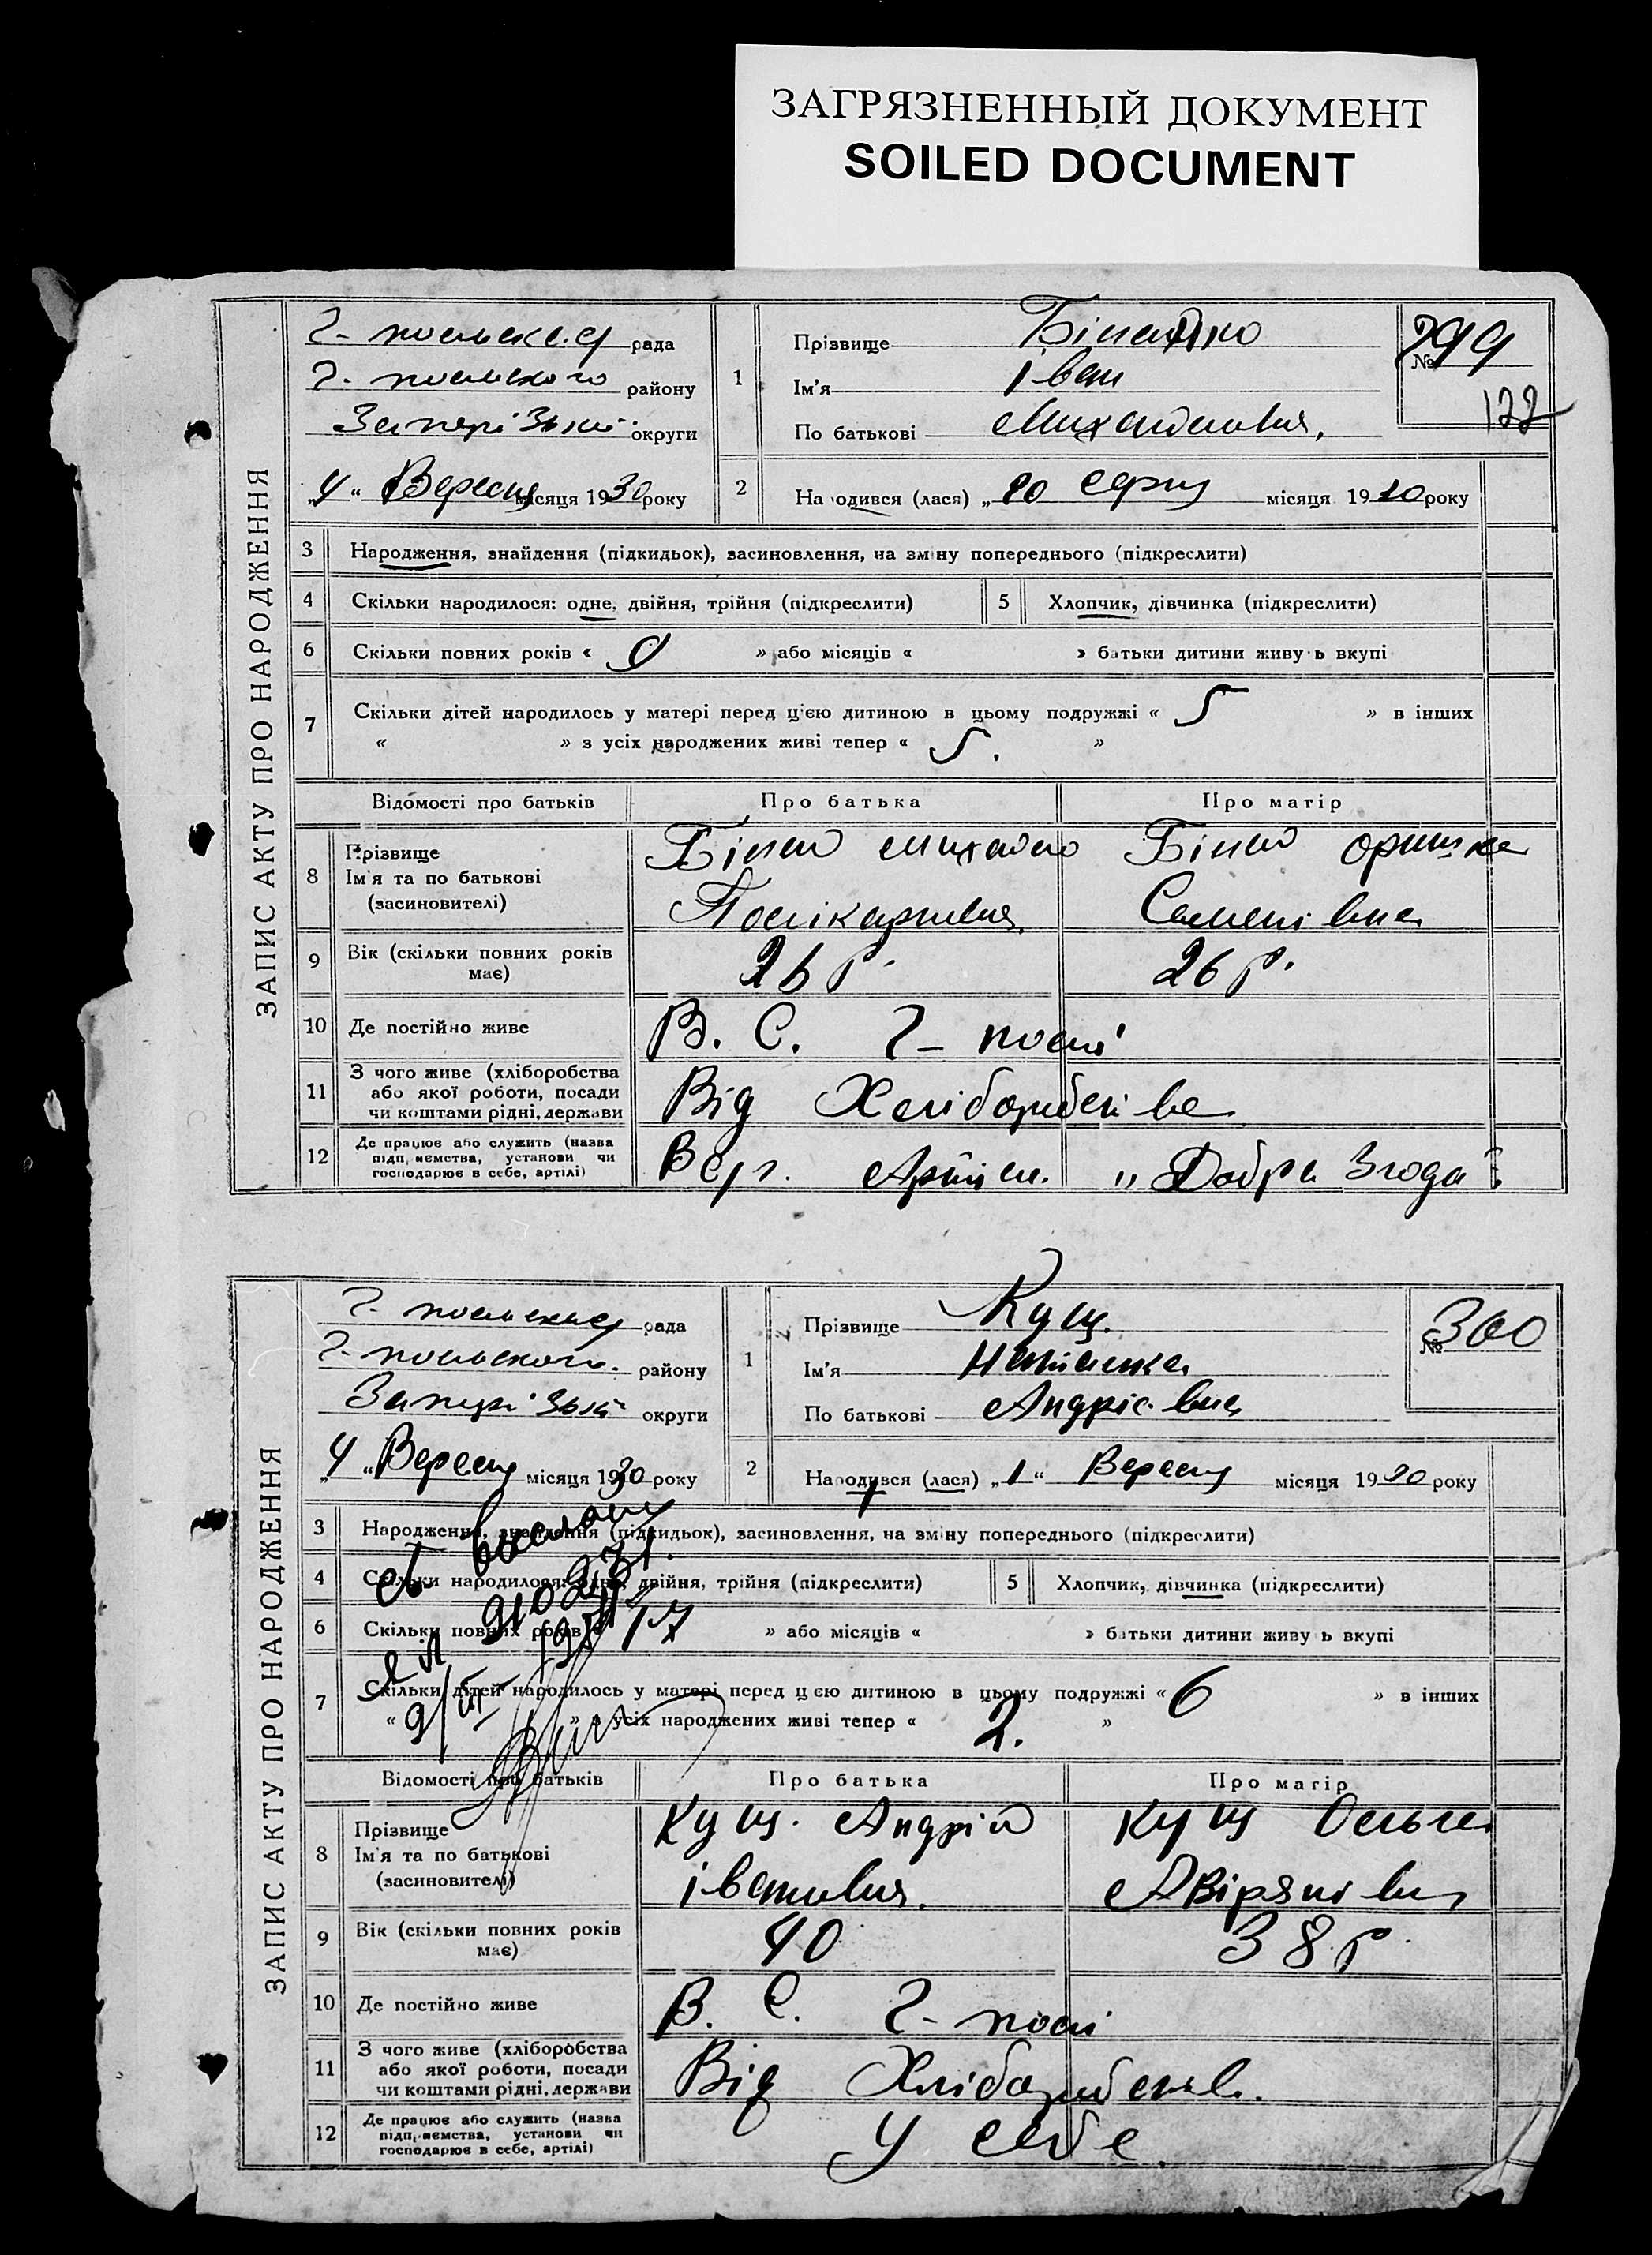 ЗАГРЯЗНЕННЫЙ ДОКУМЕНТ
SOILED DOCUMENT
ЗАПИС АКТУ ПРО НАРОДЖЕННЯ
рада
району
округи
„4“ Вересня місяця 1930 року
1
Прізвище
Ім'я Іван
По батькові Михайлович,
№ 299
122
2
Народився (лася) „20 серпня місяця 1930 року
3 Народження, знайдення (підкидьок), засиновлення, на зміну попереднього (підкреслити)
4 Скільки народилося: одне, двійня, трійня (підкреслити)
5 Хлопчик, дівчинка (підкреслити)
6 Скільки повних років « » або місяців « » батьки дитини живуть вкупі
7 Скільки дітей народилось у матері перед цією дитиною в цьому подружжі « 5 » в інших
« » з усіх народжених живі тепер « 5. »
Відомості про батьків Про батька Про матір
8 Прізвище
Ім'я та по батькові
(засновителі)
Михайло
Полікарпович
Оришка
Семенівна
9 Вік (скільки повних років має) 26 р. 26 р.
10 Де постійно живе В. С. Г-полі
11 З чого живе (хліборобства або якої роботи, посади чи коштами рідні, держави Від Хліборобства
12 Де працює або служить (назва підприємства, установи чи господарює в себе, артілі) „Добра Згода“
ЗАПИС АКТУ ПРО НАРОДЖЕННЯ
рада
району
округи
„4“ Вересня місяця 1930 року
1
Прізвище Кущ.
Ім'я Наталка
По батькові Андріївна
№ 300
2
Народився (лася) „1“ Вересня місяця 1930 року
3 Народження, знайдення (підкидьок), засиновлення, на зміну попереднього (підкреслити)
4 Скільки народилося: одне, двійня, трійня (підкреслити)
5 Хлопчик, дівчинка (підкреслити)
6 Скільки повних років « » або місяців « » батьки дитини живуть вкупі
7 Скільки дітей народилось у матері перед цією дитиною в цьому подружжі « 6 » в інших
« » з усіх народжених живі тепер « 2. »
Відомості про батьків Про батька Про матір
8 Прізвище
Ім'я та по батькові
(засиновителі)
Кущ. Андрій
Іванович.
Кущ Ольга
9 Вік (скільки повних років має) 40 38 р.
10 Де постійно живе В. С. Г-полі
11 З чого живе (хліборобства або якої роботи, посади чи коштами рідні, держави Від Хліборобств.
12 Де працює або служить (назва підприємства, установи чи господарює в себе, артілі) У себе